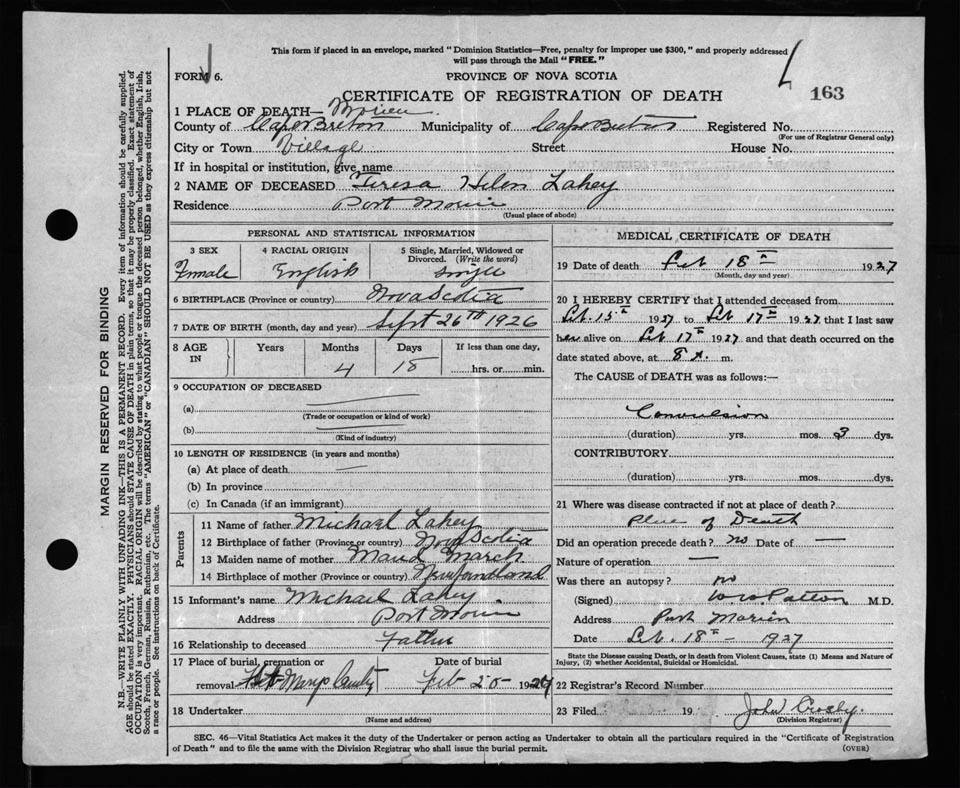 This form if placed in an envelope, marked "Dominion Statistics—Free, penalty for improper use $300," and properly addressed
will pass through the Mail "FREE."
FORM 6.
PROVINCE OF NOVA SCOTIA
CERTIFICATE OF REGISTRATION OF DEATH
163
1 PLACE OF DEATH— Morien
County of Cape Breton Municipality of Cape Breton Registered No.
(For use of Registrar General only)
City or Town Village Street House No.
If in hospital or institution, give name
2 NAME OF DECEASED Teresa Helen Lahey
Residence Port Morien
(Usual place of abode)
PERSONAL AND STATISTICAL INFORMATION
3 SEX 4 RACIAL ORIGIN 5 Single, Married, Widowed or
Divorced. (Write the word)
Female English single
6 BIRTHPLACE (Province or country) Nova Scotia
7 DATE OF BIRTH (month, day and year) Sept 26TH 1926
8 AGE IN Years Months Days If less than one day,
4 18 hrs. or min.
9 OCCUPATION OF DECEASED
(a)
(Trade or occupation or kind of work)
(b)
(Kind of industry)
10 LENGTH OF RESIDENCE (in years and months)
(a) At place of death —
(b) In province
(c) In Canada (if an immigrant)
Parents
11 Name of father Michael Lahey
12 Birthplace of father (Province or country) Nova Scotia
13 Maiden name of mother Maud March
14 Birthplace of mother (Province or country) Newfoundland
15 Informant's name Michael Lahey
Address Port Morien
16 Relationship to deceased Father
17 Place of burial, cremation or Date of burial
removal Marys Feb 20 19
18 Undertaker
(Name and address)
MEDICAL CERTIFICATE OF DEATH
19 Date of death Feb 18th 1927
(Month, day and year)
20 I HEREBY CERTIFY that I attended deceased from
Feb. 15th 1927 to Feb 17th 1927 that I last saw
her alive on Feb 17th 1927 and that death occurred on the
date stated above, at 8 A. m.
The CAUSE of DEATH was as follows:—
Convulsion
(duration) yrs. mos. 3 dys.
CONTRIBUTORY
(duration) yrs. mos. dys.
21 Where was disease contracted if not at place of death?
place of Death
Did an operation precede death? no Date of —
Nature of operation —
Was there an autopsy? no
(Signed) Patton M.D.
Address Port Morien
Date Feb. 18th – 1927
State the Disease causing Death, or in death from Violent Causes, state (1) Means and Nature of
Injury, (2) whether Accidental, Suicidal or Homicidal.
22 Registrar's Record Number
23 Filed 19 John Crosby.
(Division Registrar)
SEC. 46—Vital Statistics Act makes it the duty of the Undertaker or person acting as Undertaker to obtain all the particulars required in the "Certificate of Registration
of Death" and to file the same with the Division Registrar who shall issue the burial permit.
(OVER)
MARGIN RESERVED FOR BINDING
N.B.—WRITE PLAINLY WITH UNFADING INK—THIS IS A PERMANENT RECORD. Every item of information should be carefully supplied.
AGE should be stated EXACTLY. PHYSICIANS should STATE CAUSE OF DEATH in plain terms, so that it may be properly classified. Exact statement of
OCCUPATION is very important. RACIAL ORIGIN will be described by stating to what people or tongue the deceased person belonged, whether English, Irish,
Scotch, French, German, Russian, Ruthenian, etc. The terms "AMERICAN" or "CANADIAN" SHOULD NOT BE USED as they express citizenship but not
a race or people. See instructions on back of Certificate.